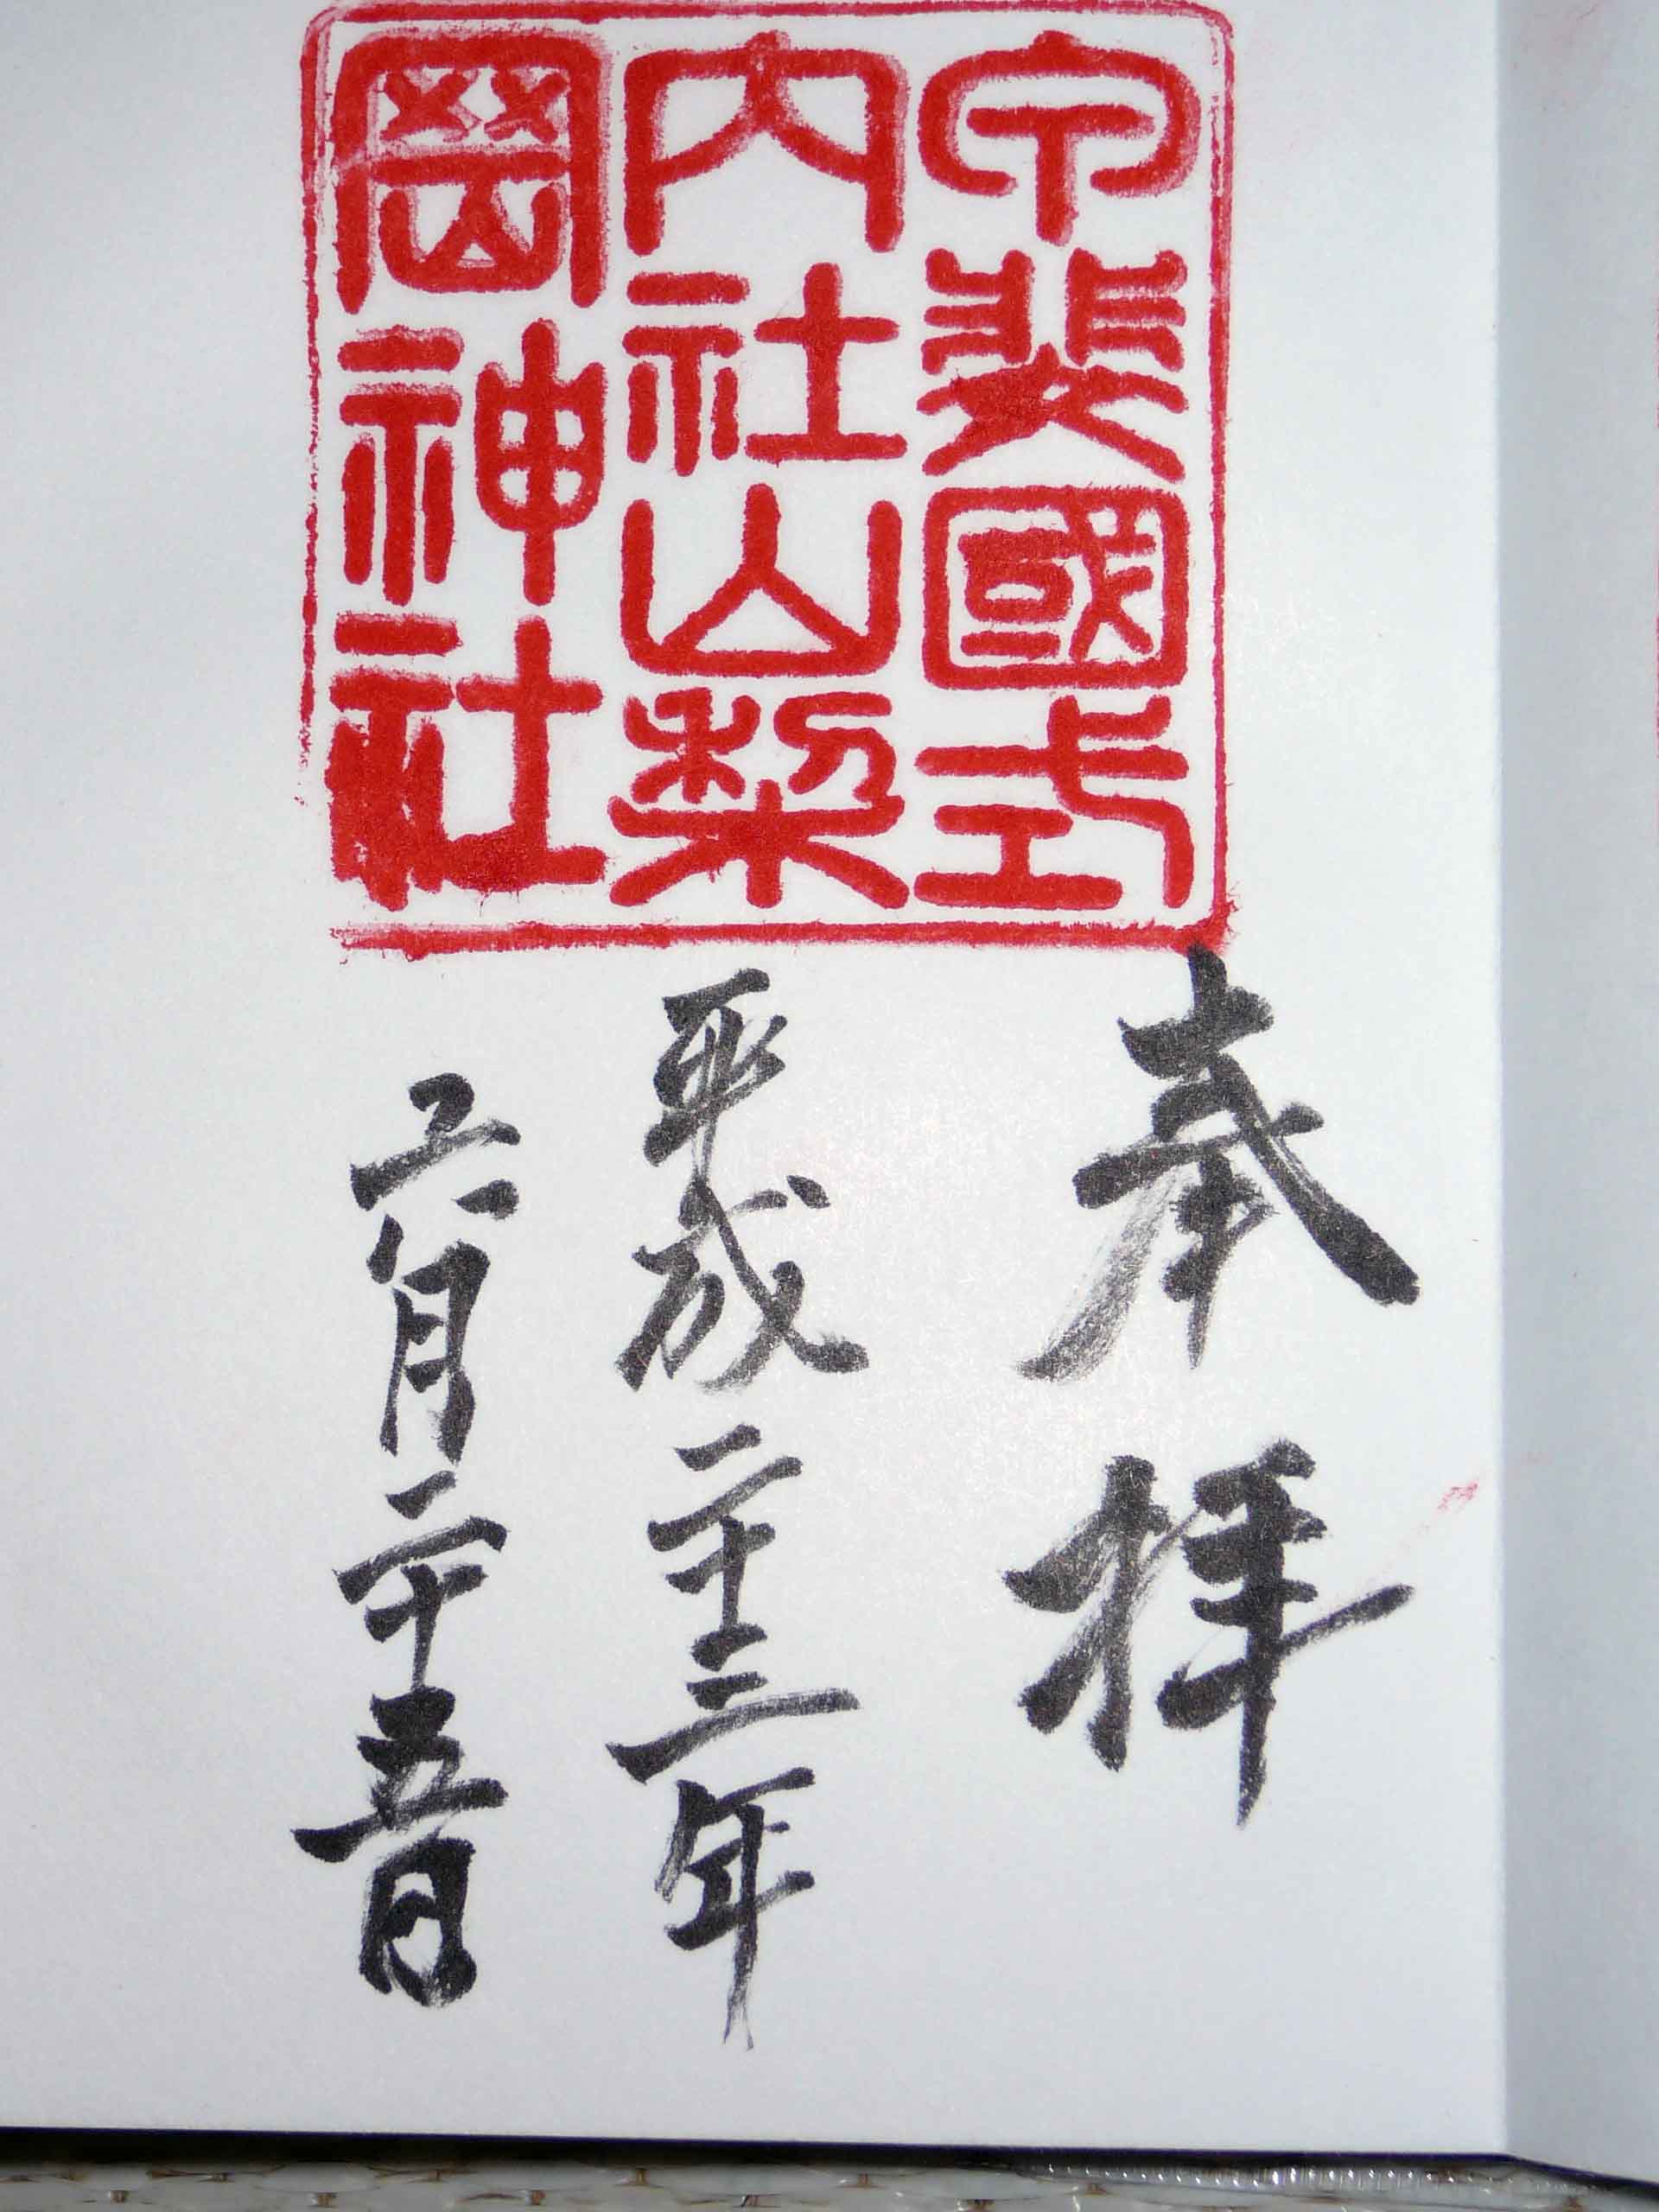 甲斐國式
内社山梨
岡神社
奉拝
平成二十三年
六月二十五日